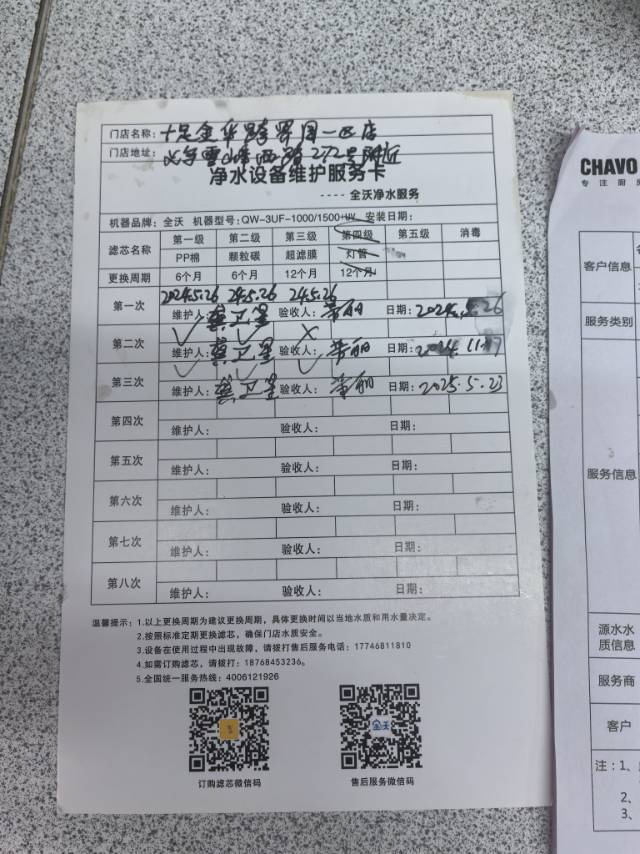 门店名称：十足金华跨贸园一区店
门店地址：义乌雪峰西路272号附近
净水设备维护服务卡
----全沃净水服务
机器品牌：全沃 机器型号：QW-3UF-1000/1500-UV 安装日期：
滤芯名称 第一级 第二级 第三级 第四级 第五级 消毒
PP棉 颗粒碳 超滤膜 灯管
更换周期 6个月 6个月 12个月 12个月
第一次 2024.5.26 24.5.26 24.5.26
维护人： 卫星 验收人： 日期：2024.5.26
第二次 ✓ ✓ ×
维护人： 卫星 验收人： 日期：2024.11.17
第三次 ✓ ✓ ✓
维护人： 卫星 验收人： 日期：2025.5.23
第四次
维护人： 验收人： 日期：
第五次
维护人： 验收人： 日期：
第六次
维护人： 验收人： 日期：
第七次
维护人： 验收人： 日期：
第八次
维护人： 验收人： 日期：
温馨提示：1.以上更换周期为建议更换周期，具体更换时间以当地水质和用水量决定。
2.按照标准定期更换滤芯，确保门店水质安全。
3.设备在使用过程中出现故障，请拨打售后服务电话：17746811810
4.如需订购滤芯，请拨打：18768453236。
5.全国统一服务热线：4006121926
全沃
订购滤芯微信码 售后服务微信码
CHAVO
专注厨
客户信息
服务类别
服务信息
源水水
质信息
服务商
客户
注：1、
2、
3、